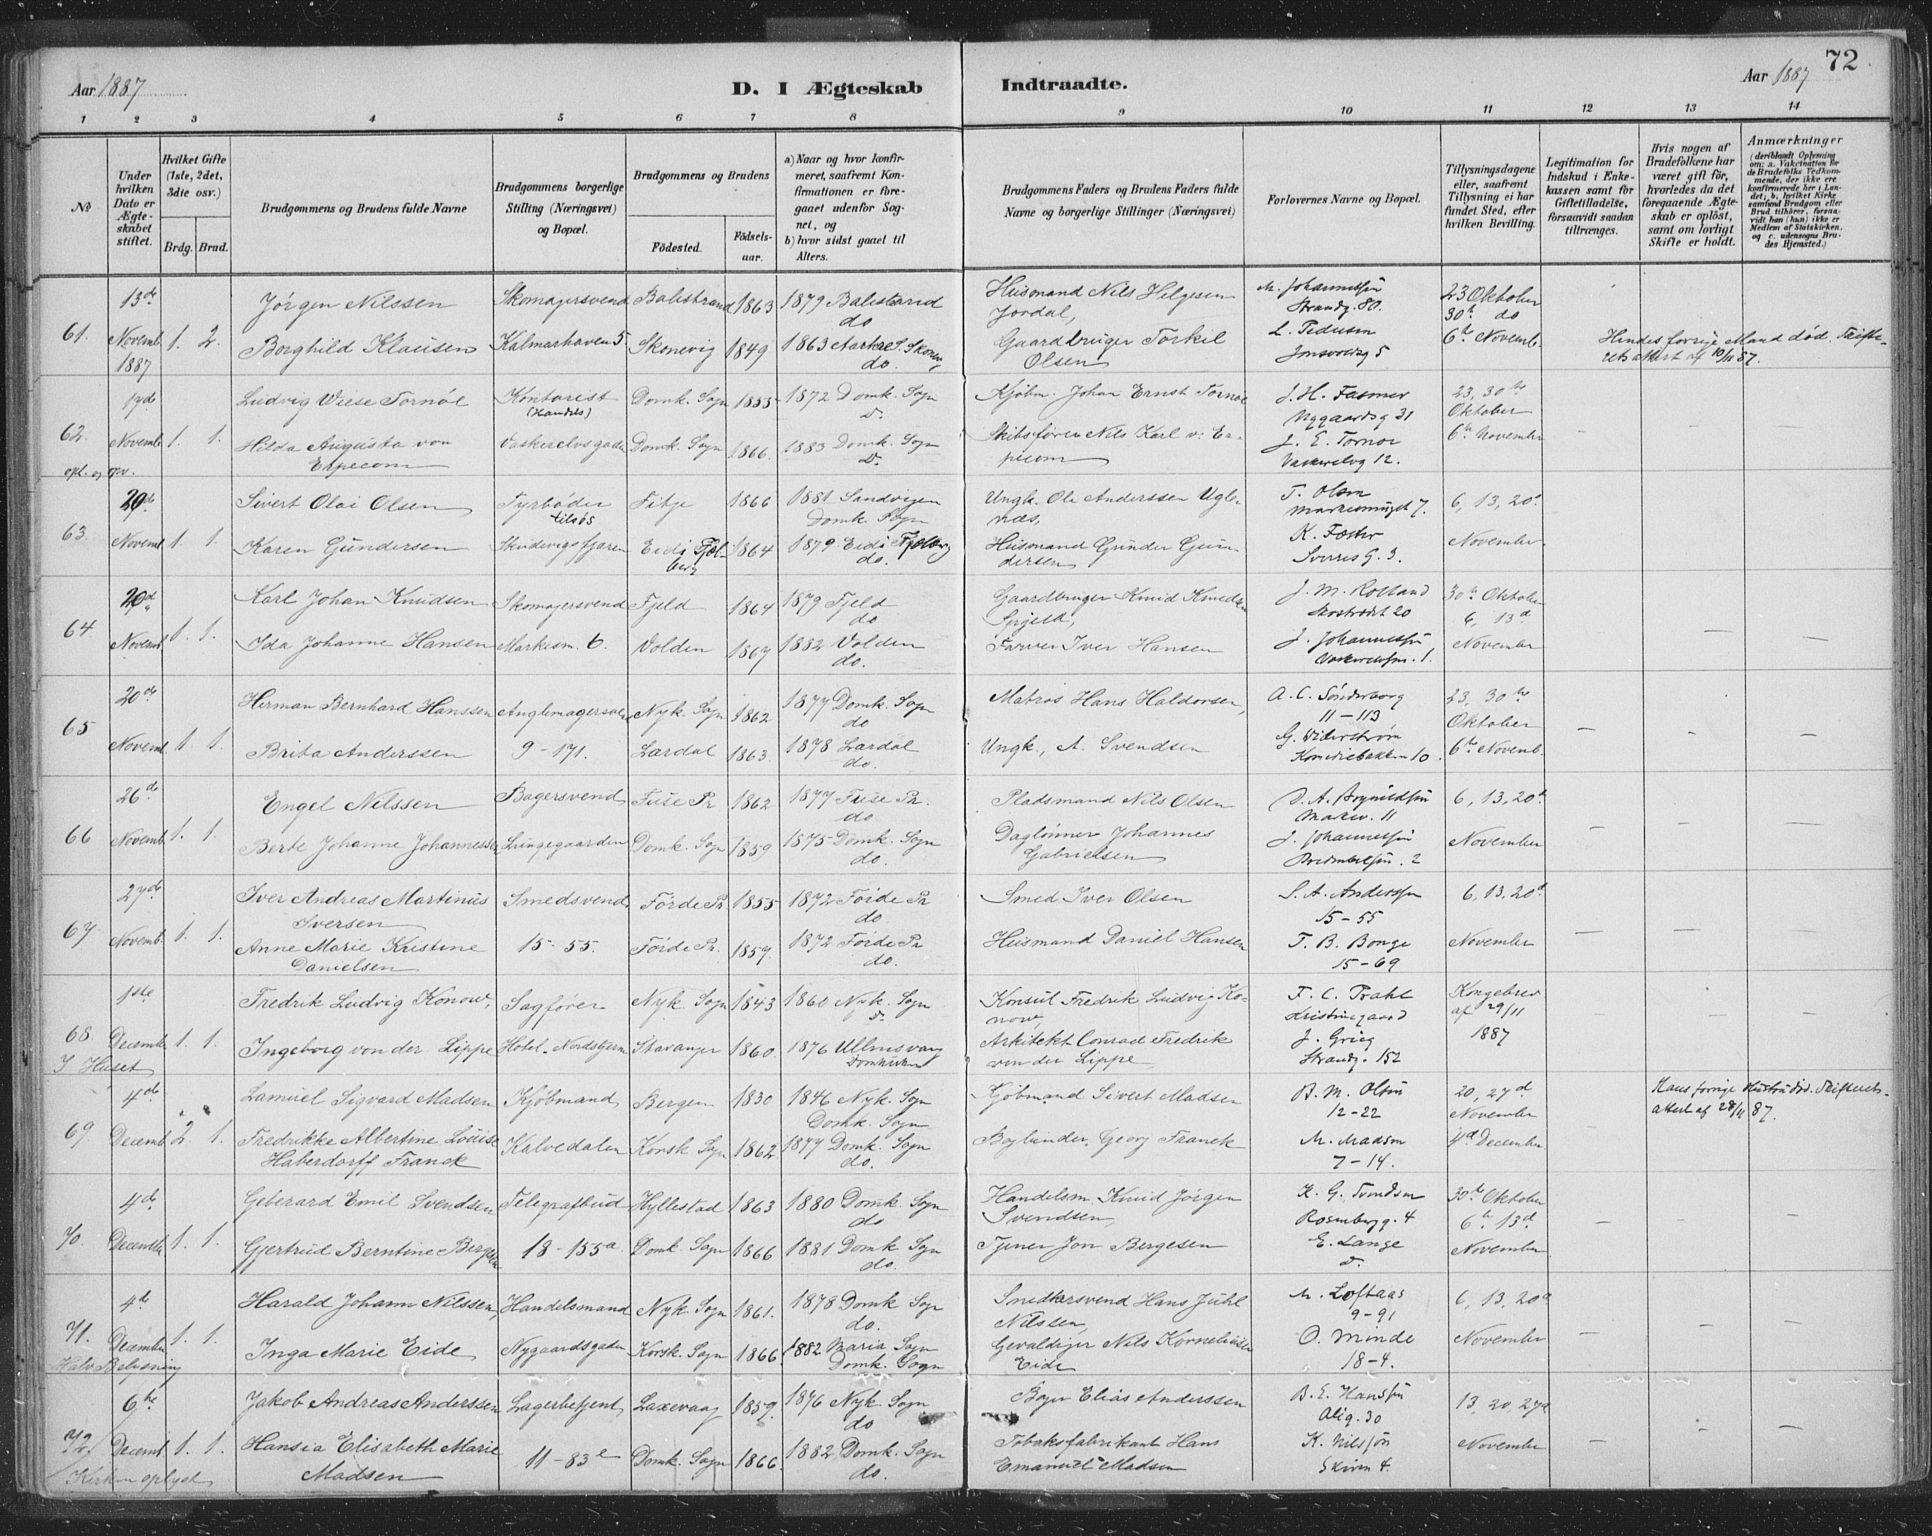 72
Aar 1887
D. I Ægteskab Indtraadte.
Aar 1887
1 2 3 4 5 6 7 8 9 10 11 12 13 14
№
Under hvilken Dato er Ægteskabet stiftet.
Hvilket Gifte (1ste, 2det, 3die osv.)
Brdg. Brud.
Brudgommens og Brudens fulde Navne
Brudgommens borgerlige Stilling (Næringsvei) og Bopæl.
Brudgommens og Brudens
Fødested.
Fødselsaar.
a) Naar og hvor konfirmeret, saafremt Konfirmationen er foregaaet udenfor Sognet, og
b) hvor sidst gaaet til Alters.
Brudgommens Faders og Brudens Faders fulde Navne og borgerlige Stillinger (Næringsvei)
Forlovernes Navne og Bopæl.
Tillysningsdagene eller, saafremt Tillysning ei har fundet Sted, efter hvilken Bevilling.
Legitimation for Indskud i Enkekassen samt for Giftetilladelse, forsaavidt saadan tiltrænges.
Hvis nogen af Brudefolkene har været gift før, hvorledes da det foregaaende Ægteskab er opløst, samt om lovligt Skifte er holdt.
Anmærkninger
(deriblandt Oplysning om: a. Vakcination for de Brudefolks Vedkommende, der ikke ere konfirmerede her i Landet; b. hvilket Kirkesamfund Brudgom eller Brud tilhører, forsaavidt han (hun) ikke er Medlem af Statskirken, og c. udensogns Brudes Hjemsted.)
13de Jørgen Nilssen Skomagersvend Balestrand 1863 1879 Balestrand Husmand Nils Helgesen M. Johannessen 23 Oktober
do Jordal, Strandg. 80. 30te do
61. Novemb. 1. 2. Borghild Klausen Kalmarhaven 5 Skonevig 1849 1863 Skonevig Gaardbruger Torkil L. Pedersen 6te Novemb. Hendes forrige Mand død. Skifte-
1887 do. Olsen 5 retsattest af 10/11 87.
Ludvig Wiese Tornøe Kontorist Domk. Sogn 1855 1872 Domk. Sogn Kjøbm. Johan Ernst Tornøe J. H. Fasmer 23, 30te
(Handels) Nygaardsg 31 Oktober
62. Novemb. 1. 1. Hilda Augusta von Domk. Sogn 1866. 1883 Domk. Sogn Skibsfører Nils Karl v. Er- J. E. Tornøe 6te November
Erpecom pecom 12.
20de Sivert Olai Olsen Fyrbøder Fitje 1866 1881 Sandvigen Ungk. Ole Anderssen Ugle- T. Olsen 6, 13, 20de
tilsøs Domk. Sogn næs, 7.
63. Novemb. 1. 1. Karen Gundersen Eid i Fjel- 1864 1879 Eid i Fjelberg Husmand Gunder Gun- K. November
berg do. dersen Sverres G. 3.
20de Karl Johan Knudsen Skomagersvend Fjeld 1864 1879 Fjeld Gaardbruger Knud Knudsen J. M. Rolland 30te Oktober
do 20 6, 13de
64. Novemb. 1. 1. Ida Johanne Hansen Markesm. 6. Volden 1867 1882 Volden Farver Iver Hansen J. Johannessen November
do. 1.
20de Herman Bernhard Hanssen Nyk. Sogn 1862 1877 Domk. Sogn Matros Hans Haldorsen, A. C. Sønderborg 23, 30te
do 11-113 Oktober
65 Novemb. 1. 1. Brita Anderssen 9-171. Lærdal 1863. 1878 Lærdal Ungk., A. Svendsen G. 6te Novemb.
do. 10
26de Engel Nilssen Bagersvend Fuse Pr. 1862 1877 Fuse Pr. Pladsmand Nils Olsen 6, 13, 20de
do 11
66 Novemb. 1. 1. Berte Johanne Johannessen Lungegaarden Domk. Sogn 1859 1875 Domk. Sogn Daglønner Johannes J. Johannessen November
do. Gabrielsen 2
27de Iver Andreas Martinus Smedsvend Førde Pr 1855 1872 Førde Pr Smed Iver Olsen S. A. Anderssen 6, 13, 20de
Iversen do 15-55
67 Novemb. 1. 1. Anne Marie Kristine 15-55. Førde Pr. 1859. 1872 Førde Pr Husmand Daniel Hansen T. B. Bonge November
Danielsen do. 15-69
1ste Fredrik Ludvig Konow, Sagfører Nyk. Sogn 1843 1860 Nyk. Sogn Konsul Fredrik Ludvig Ko- F. C. Prahl Kongebrev
now, Kristinegaard af 29/11
68. Decembr 1. 1. Ingeborg von der Lippe Hotel Nordstjern Stavanger 1860. 1876 Ullensvang Arkitekt Conrad Fredrik J. Grieg 1887
I Huset Domkirken von der Lippe Strandg. 152
4de Samuel Sigvard Madsen Kjøbmand Bergen 1830 1846 Nyk. Sogn Kjøbmand Sivert Madsen B. M. Olsen 20, 27de Hans forrige Hustru død. Skifterets-
Domk. Sogn 12-22 November attest af 28/11 87.
69. Decemb 2. 1. Fredrikke Albertine Louise Kalvedalen Korsk. Sogn 1862 1877 Domk. Sogn Georg Franck M. Madsen 4de December
Haberdorff Franck do. 7-14.
4de Geberard Emil Svendsen Telegrafbud Hyllestad 1863 1880 Domk. Sogn Handelsm. Knud Jørgen K. G. Svendsen 30te Oktober
do Svendsen Rosenbergg. 4 6te 13de
70. Decemb. 1. 1. Gjertrud Berntine Bergesen 18-155a Domk. Sogn 1866 1881 Domk. Sogn Tjener Jon Bergesen E. Lange November
do.
4de Harald Johann Nilssen, Handelsmand Nyk. Sogn 1861. 1878 Domk Sogn Snedkersvend Hans Juhl M. Loftaas 6, 13, 20de
do. Nilssen, 9-91
71. Decembr 1. 1. Inga Marie Eide Nygaardsgaden Korsk. Sogn 1866 1882 Maria Sogn Gevaldiger Nils Korneliussen O. Minde November
Halv Belysning Domk. Sogn Eide 18-4.
6te Jakob Andreas Anderssen Lagerbetjent Laxevaag 1859. 1876 Nyk. Sogn Elias Anderssen B. E. Hanssen 13, 20, 27de
do 30
72. Decemb 1. 1. Hansia Elisabeth Marie 11-83e Domk. Sogn 1866. 1882 Domk. Sogn Tobaksfabrikant Hans K. Nilssøn November
Kirken oplyst Madsen do. Emanuel Madsen Skiven 4.